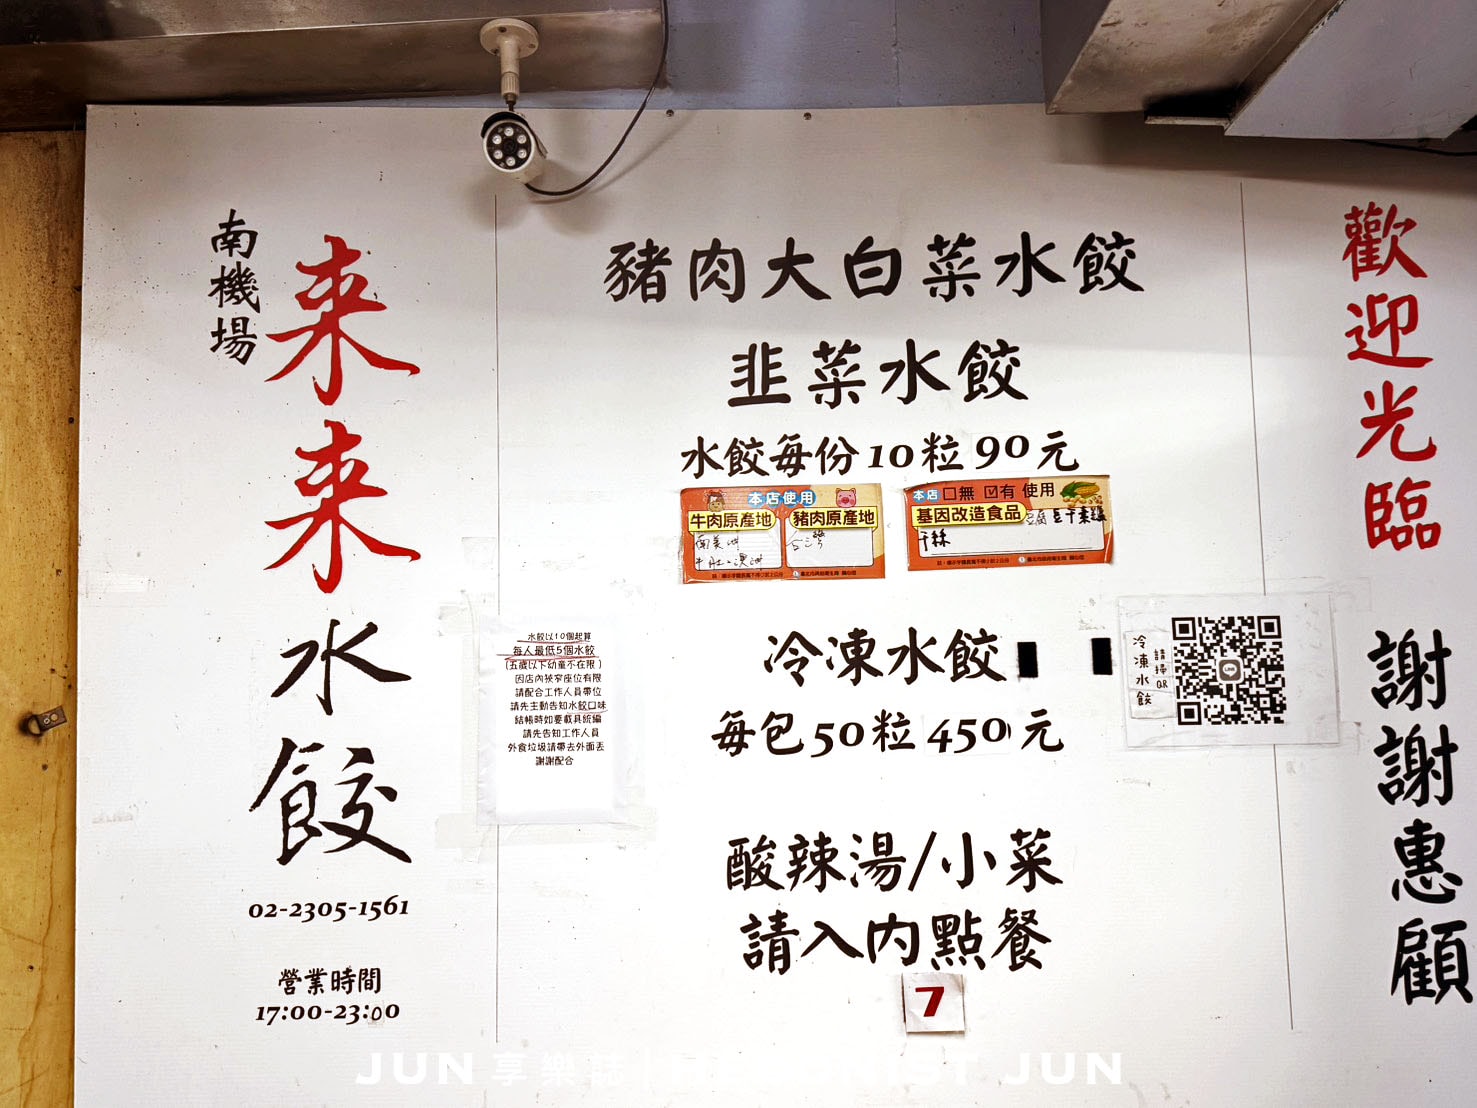 南機場
来来水餃
02-2305-1561
營業時間
17:00-23:00
豬肉大白菜水餃
韭菜水餃
水餃每份10粒90元
本店使用
牛肉原產地
豬肉原產地
南美洲
牛肚、澳洲
台灣
本店 □無 ☑有 使用
基因改造食品
水餃以10個起算
每人最低5個水餃
(五歲以下幼童不在限)
因店內狹窄座位有限
請配合工作人員帶位
請先主動告知水餃口味
結帳時如要載具統編
請先告知工作人員
外食垃圾請帶去外面丟
謝謝配合
冷凍水餃
每包50粒450元
冷凍水餃
請掃QR
LINE
酸辣湯/小菜
請入內點餐
7
歡迎光臨
謝謝惠顧
JUN享樂誌|HEDONIST JUN